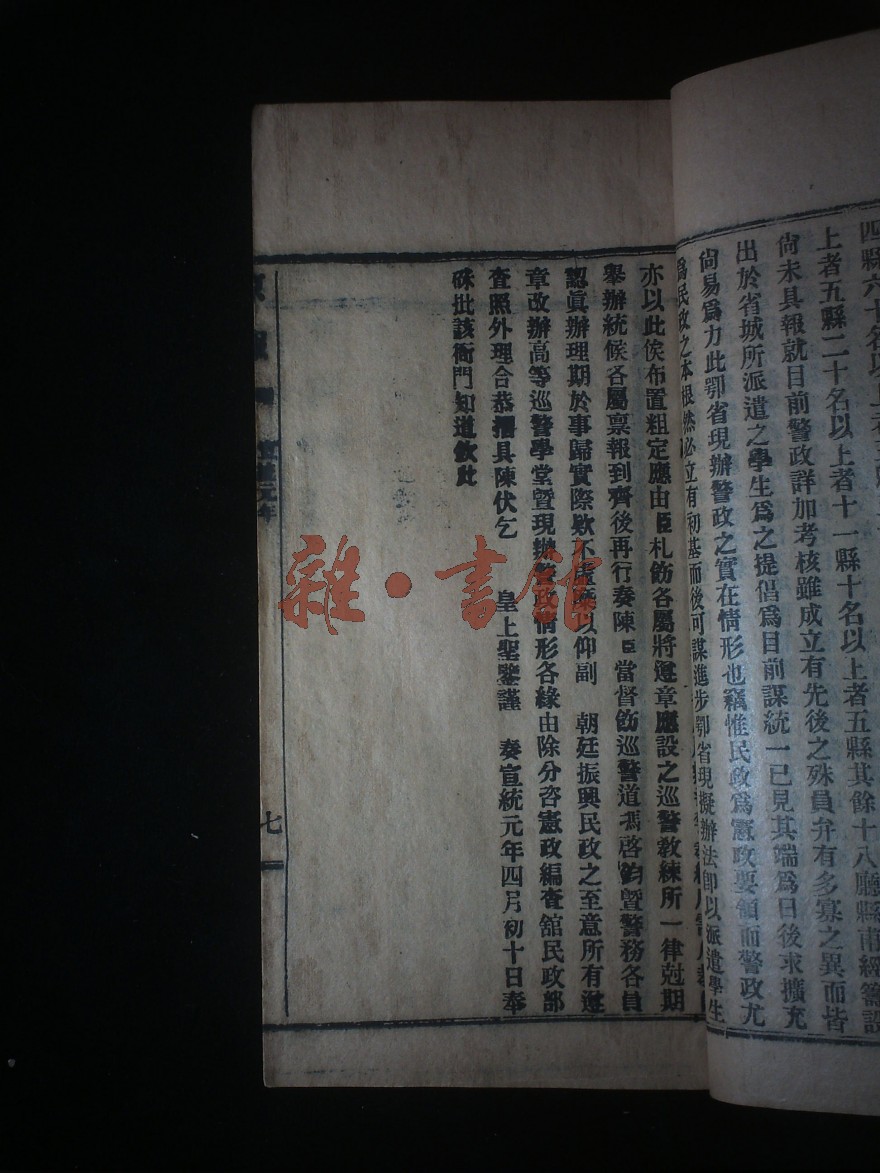 四縣六十名以上者
上者五縣二十名以上者十一縣十名以上者五縣其餘十八廳縣甫經籌設
尙未具報就目前警政詳加考核雖成立有先後之殊員弁有多寡之異而皆
出於省城所派遣之學生爲之提倡爲目前謀統一已見其端爲日後求擴充
尙易爲力此鄂省現辦警政之實在情形也竊惟民政爲憲政要領而警政尤
爲民政之本根然必立有初基而後可謀進步鄂省現擬辦法卽以派遣學生
亦以此俟布置粗定應由臣札飭各屬將遵章應設之巡警敎練所一律尅期
舉辦統候各屬稟報到齊後再行奏陳臣當督飭巡警道馮啓鈞曁警務各員
認眞辦理期於事歸實際欵不虛糜以仰副 朝廷振興民政之至意所有遵
章改辦高等巡警學堂曁現辦警政情形各緣由除分咨憲政編查舘民政部
查照外理合恭摺具陳伏乞 皇上聖鑒謹 奏宣統元年四月初十日奉
硃批該衙門知道欽此
宣統元年
七
雜·書館